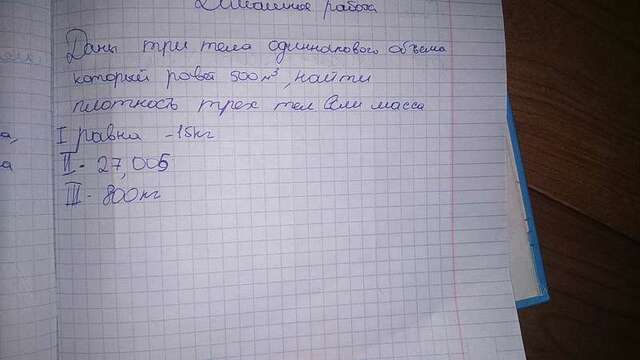 Домашняя работа
Даны три тела одинакового объёма
который равен 500 м³, найти
плотность трёх тел если масса
I равна - 15 кг
II - 27,005
III - 800 кг